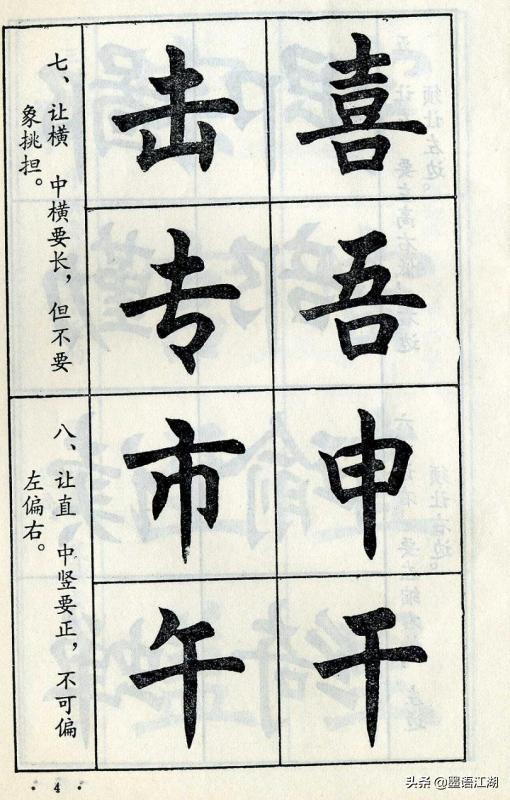 七、让横 中横要长，但不要
象挑担。
击 喜
专 吾
八、让直 中竖要正，不可偏
左偏右。
市 申
午 干
· 4 ·
头条 @墨语江湖